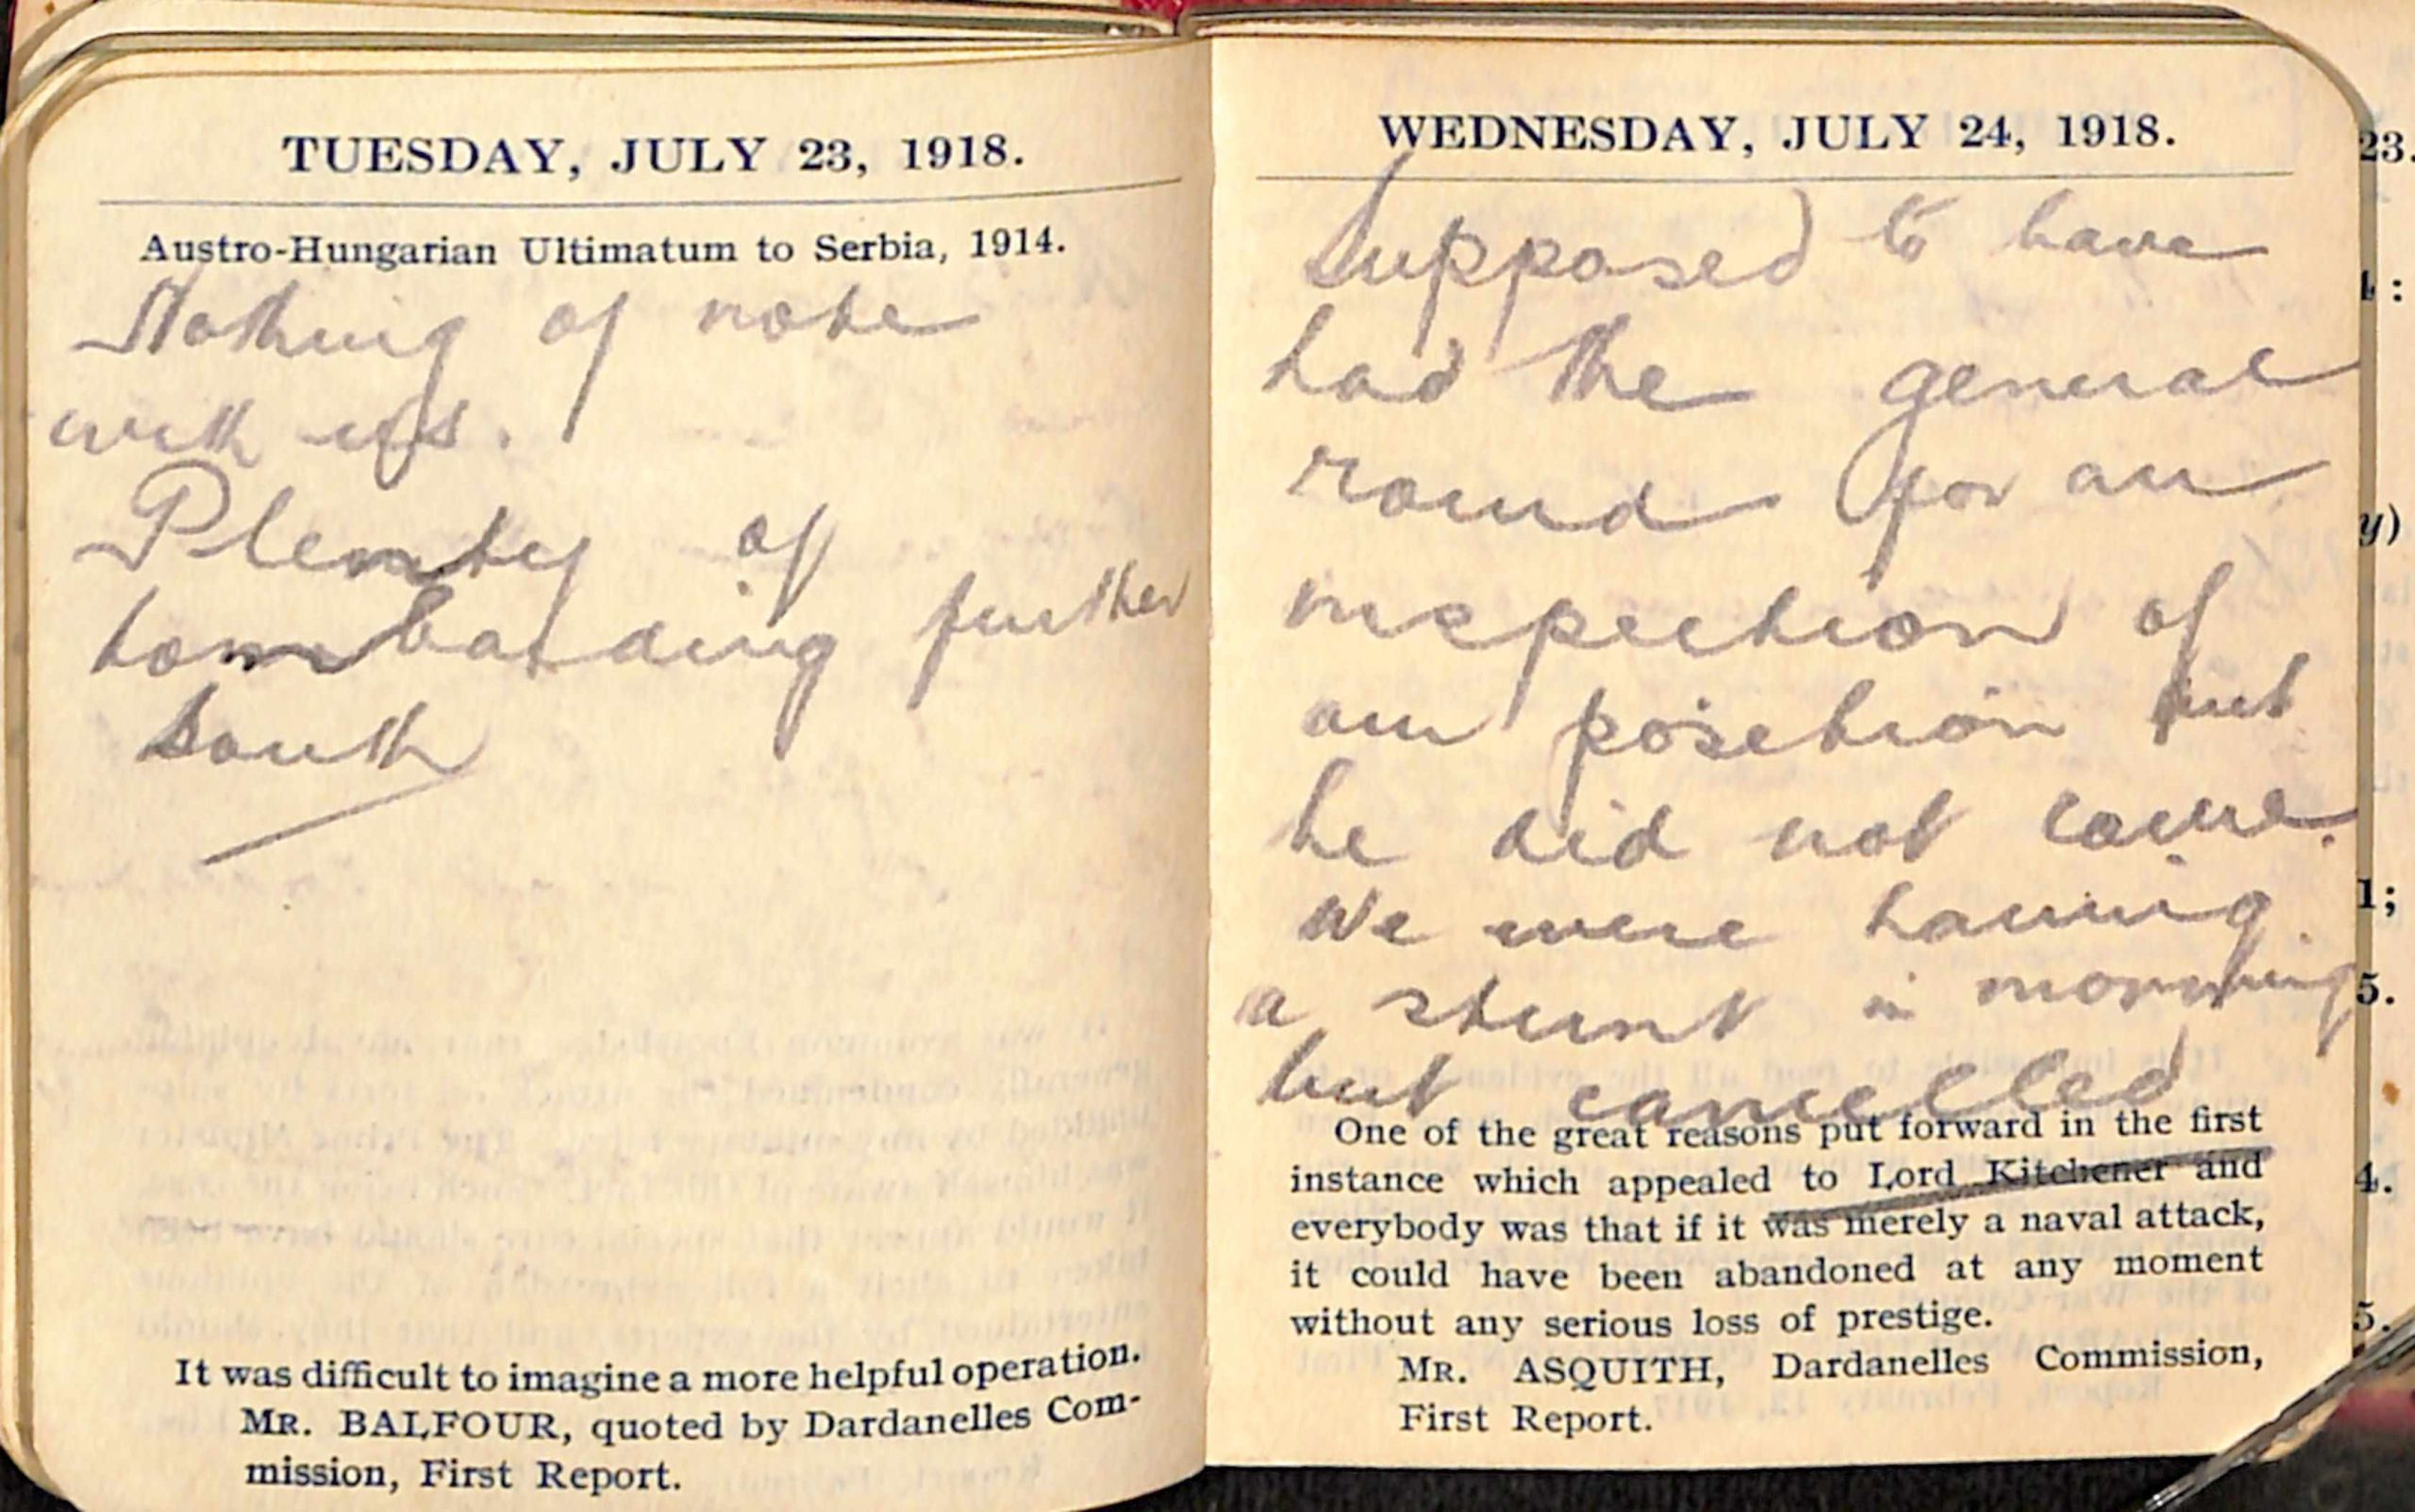 TUESDAY, JULY 23, 1918.
Austro-Hungarian Ultimatum to Serbia, 1914.
Nothing of note
with us.
Plenty of
bombarding further
South
It was difficult to imagine a more helpful operation.
MR. BALFOUR, quoted by Dardanelles Com-
mission, First Report.
WEDNESDAY, JULY 24, 1918.
Supposed to have
had the general
round for an
inspection of
our position but
he did not come.
We were having
a stunt in morning
but cancelled
One of the great reasons put forward in the first
instance which appealed to Lord Kitchener and
everybody was that if it was merely a naval attack,
it could have been abandoned at any moment
without any serious loss of prestige.
MR. ASQUITH, Dardanelles Commission,
First Report.
23.
:
y)
1;
5.
4.
5.